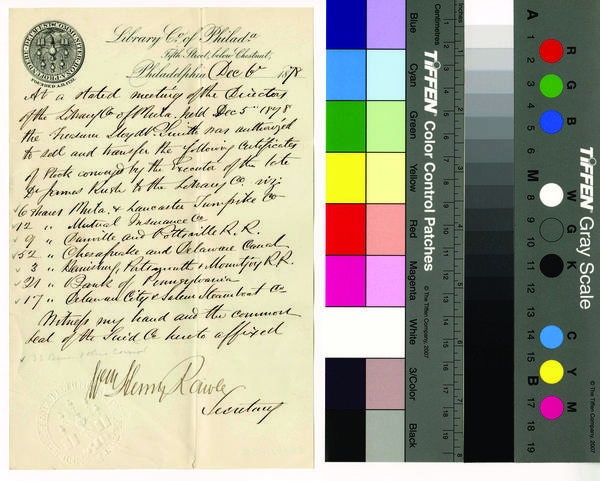 Library Co. of Philada.
Fifth Street, below Chestnut,
Philadelphia Dec 6th 1878
At a stated meeting of the Directors
of the Library Co of Phila. held Dec 5th 1878
the Treasurer Lloyd P. Smith was authorized
to sell and transfer the following Certificates
of Stock conveyed by the Executor of the late
Dr James Rush to the Library Co. viz
6 shares Phila. & Lancaster Turnpike Co
12 " Mutual Insurance Co
9 " Danville and Pottsville R. R.
52 " Chesapeake and Delaware Canal
3 " Harrisburg, Portsmouth & Mountjoy R R.
21 " Bank of Pennsylvania
17 " Delaware City & Salem Steamboat Co
Witness my hand and the common
seal of the said Co hereto affixed
Wm Henry Rawle
Secretary
TIFFEN Color Control Patches
© The Tiffen Company, 2007
Centimetres
Inches
Blue
Cyan
Green
Yellow
Red
Magenta
White
3/Color
Black
TIFFEN Gray Scale
© The Tiffen Company, 2007
A
1
2
3
4
5
6
M
8
9
10
11
12
13
14
15
B
17
18
19
R
G
B
W
G
K
C
Y
M